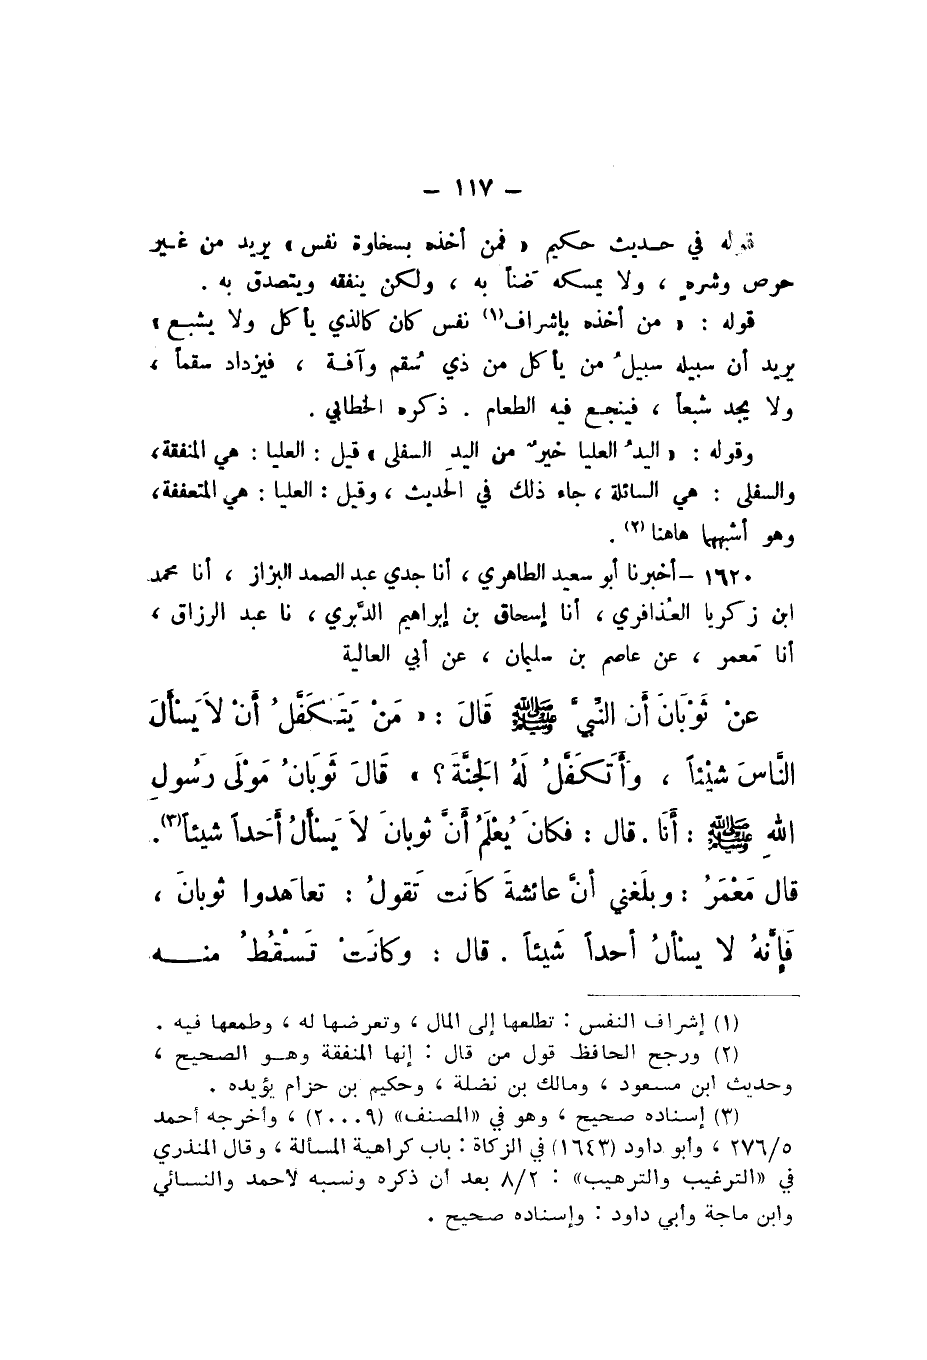 – ١١٧ –
قوله في حديث حكيم « فمن أخذه بسخاوة نفس » يريد من غير
حرص وشره ، ولا يمسكه ضناً به ، ولكن ينفقه ويتصدق به .
قوله : « من أخذه بإشراف(١) نفس كان كالذي يأكل ولا يشبع »
يريد أن سبيله سبيلُ من يأكل من ذي سُقم وآفة ، فيزداد سقماً ،
ولا يجد شبعاً ، فينجع فيه الطعام . ذكره الخطابي .
وقوله : « اليدُ العليا خيرٌ من اليدِ السفلى » قيل : العليا : هي المنفقة،
والسفلى : هي السائلة ، جاء ذلك في الحديث ، وقيل : العليا : هي المتعففة،
وهو أشبهها هاهنا (٢) .
١٦٢٠ – أخبرنا أبو سعيد الطاهري ، أنا جدي عبد الصمد البزاز ، أنا محمد
ابن زكريا العُذافري ، أنا إسحاق بن إبراهيم الدَّبري ، نا عبد الرزاق ،
أنا مَعمر ، عن عاصم بن سليمان ، عن أبي العالية
عنْ ثَوْبَانَ أن النَّبيَّ ﷺ قَالَ : « مَنْ يَتَكَفَّلُ أَنْ لاَ يَسْأَلَ
النَّاسَ شيْئاً ، وأَتَكَفَّلُ لَهُ الجَنَّةَ ؟ » قَالَ ثَوبَانُ مَوْلَى رَسُولِ
اللهِ ﷺ : أَنَا . قال : فكانَ يُعْلَمُ أَنَّ ثوبانَ لاَ يَسأَلُ أَحَداً شيئاً(٣).
قال مَعْمَرُ : وبلَغني أنَّ عائشةَ كانَت تَقولُ : تعاهَدوا ثوبانَ ،
فَإنَّهُ لا يسألُ أحداً شَيئاً . قال : وكانَتْ تَسْقُطُ منه
(١) إشراف النفس : تطلعها إلى المال ، وتعرضها له ، وطمعها فيه .
(٢) ورجح الحافظ قول من قال : إنها المنفقة وهو الصحيح ،
وحديث ابن مسعود ، ومالك بن نضلة ، وحكيم بن حزام يؤيده .
(٣) إسناده صحيح ، وهو في «المصنف» (٢٠٠٠٩) ، وأخرجه أحمد
٢٧٦/٥ ، وأبو داود (١٦٤٣) في الزكاة : باب كراهية المسألة ، وقال المنذري
في «الترغيب والترهيب» : ٨/٢ بعد أن ذكره ونسبه لأحمد والنسائي
وابن ماجة وأبي داود : وإسناده صحيح .